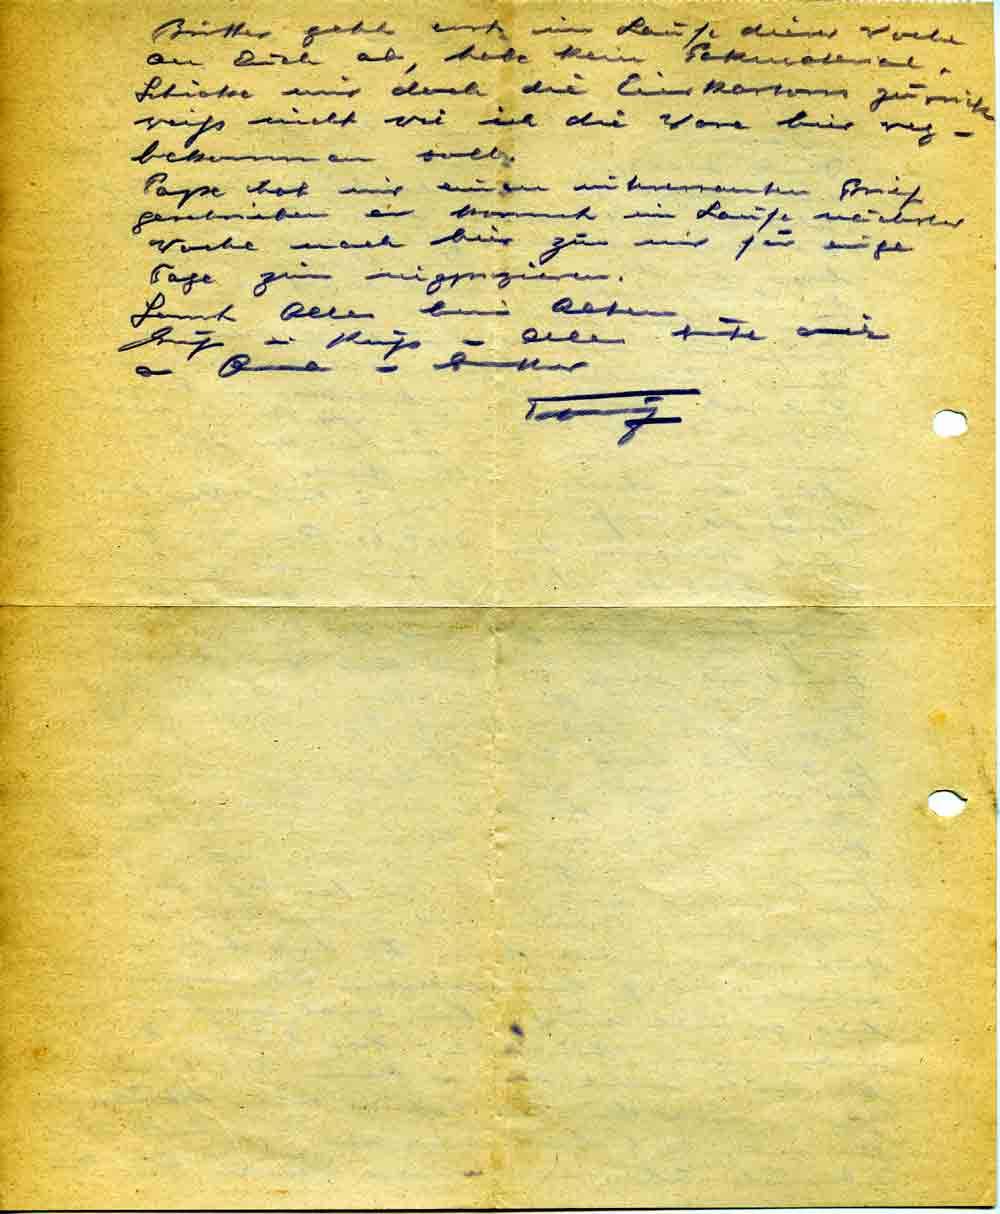 Butter geht erst im Laufe dieser Woche
an Dich ab, habe kein Pakmaterial.
Schicke mir doch die Eierkartons zurück
weiss nicht wie ich die Ware hier weg-
bekommen soll.
Papa hat mir einen interessanten Brief
geschrieben er kommt im Laufe nächster
Woche nach hier zu mir für einige
Tage zum
Sonst Alles beim Alten
Gruß u Kuß – Alles Gute auch